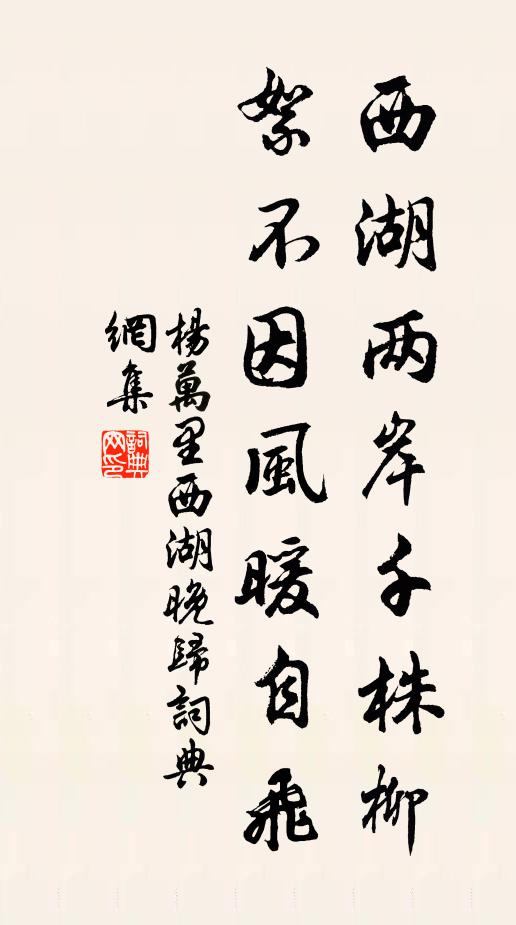 西湖两岸千株柳
絮不因風暖自飛
楊萬里西湖晚歸詞典
網集
詞典網印